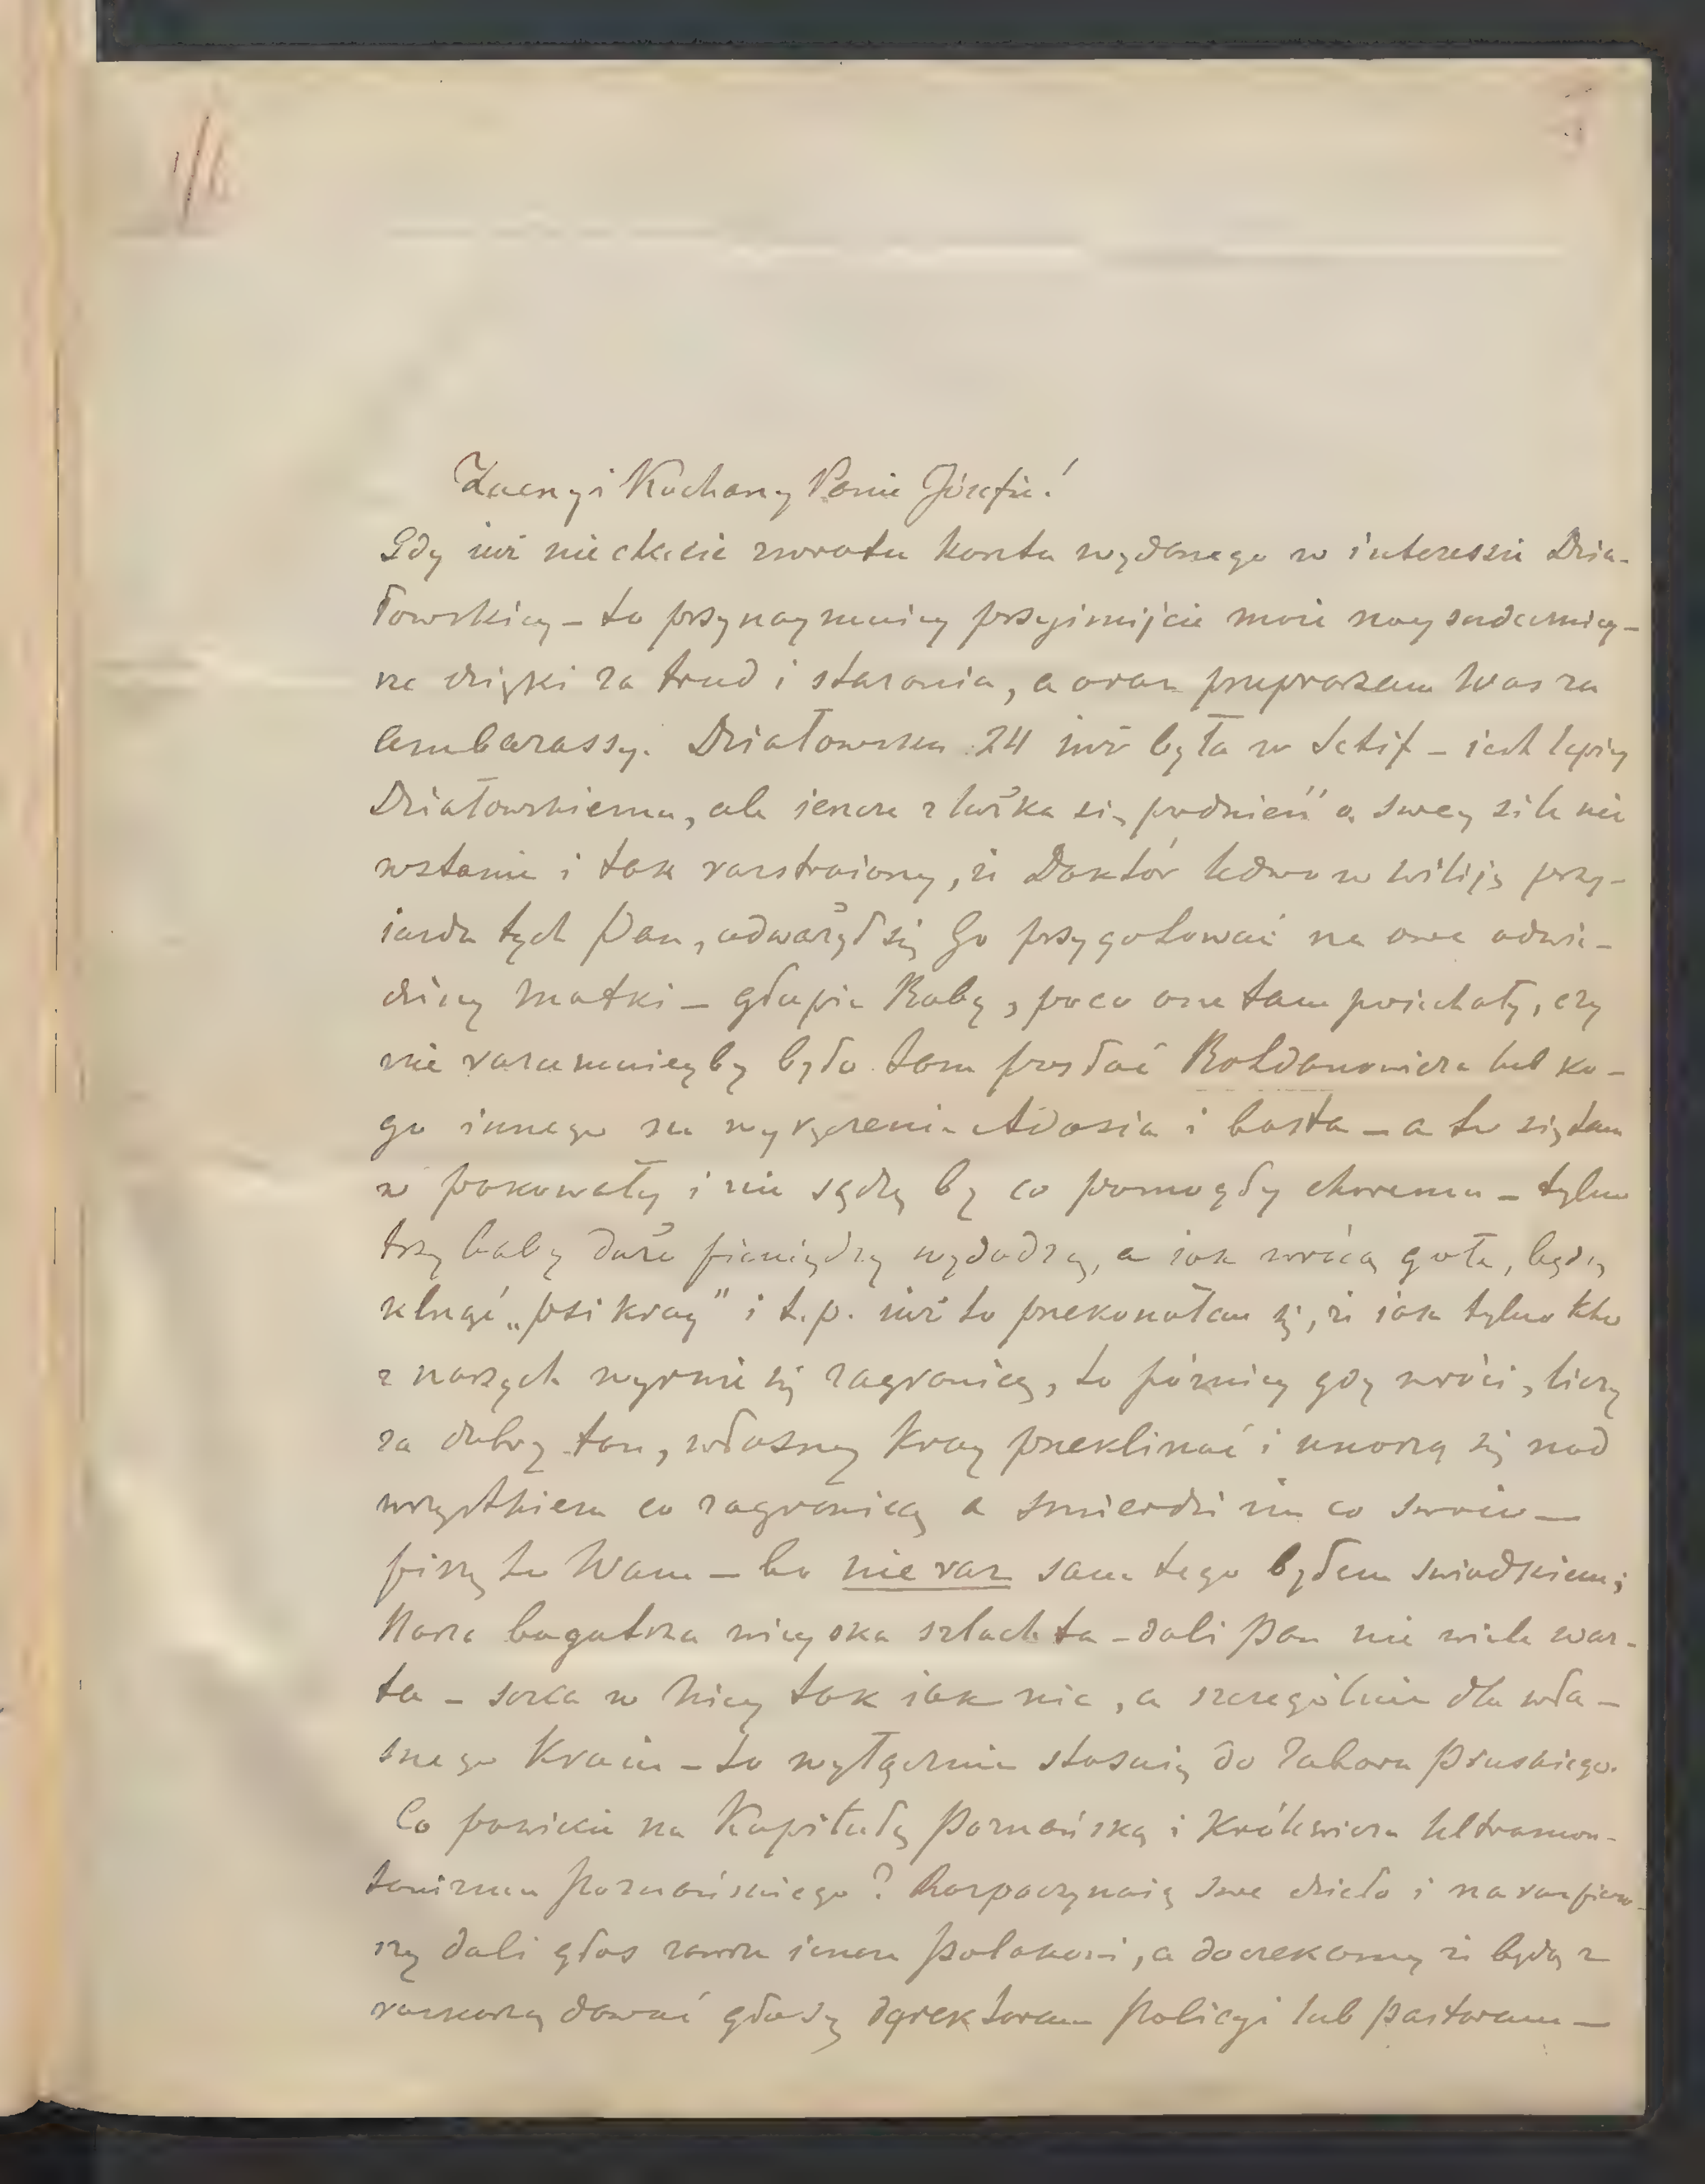 1/6
Zacny i Kochany Panie Józefie!
Gdy iuż niechcecie zwrotu kosztu wydanego w interessie Dzia-
łowskiey – to przynaymniey przyimijcie moie nayserdeczniey-
sze dzięki za trud i starania, a oraz przepraszam Was za
ambarassy. Działowska 24 iuż była w Setif – iest lepiey
Działowskiemu, ale ieszcze z łóżka się podnieść o swey sile nie
wstanie i tak rozstroiony, że Doktór ledwo w wiliją przy-
iazdu tych Pań, odważył się Go przygotować na owe odwie-
dziny Matki – głupie Baby, poco one tam poiechały, czy
nie rozumnieyby było tam posłać Bohdanowicza lub ko-
go innego na wyręczenie Adosia i basta – a to się tam
w pakowały i nie sądzę by co pomogły choremu – tylko
trzy baby dużo pieniędzy wydadzą, a iak wrócą gołe, będą
kląć „psi kray" i t.p. iuż to przekonałem się, że iak tylko kto
z naszych wyrwie się zagranicę, to pózniey gdy wróci, liczy
za dobry ton, własny kray przeklinać i unoszą się nad
wszystkiem co zagranicą a śmierdzi im co swoie –
piszę to Wam – bo nie raz sam tego byłem swiadkiem;
Nasza bogatsza wieyska szlachta – dali Pan nie wiele war-
ta – serca w niey tak iak nic, a szczególnie dla wła-
snego Kraiu – to wyłącznie stosuię do Zaboru Pruskiego.
Co powiecie na Kapitułę Poznańską i Królewicza Ultramon-
tanizmu Poznańskiego? Rozpoczynaią swe dzieło i na raz pierw-
szy dali głos zawsze ieszcze Polakowi, a doczekamy że będą z
rozkoszą dawać głosy dyrektorom Policyi lub Pastorom –